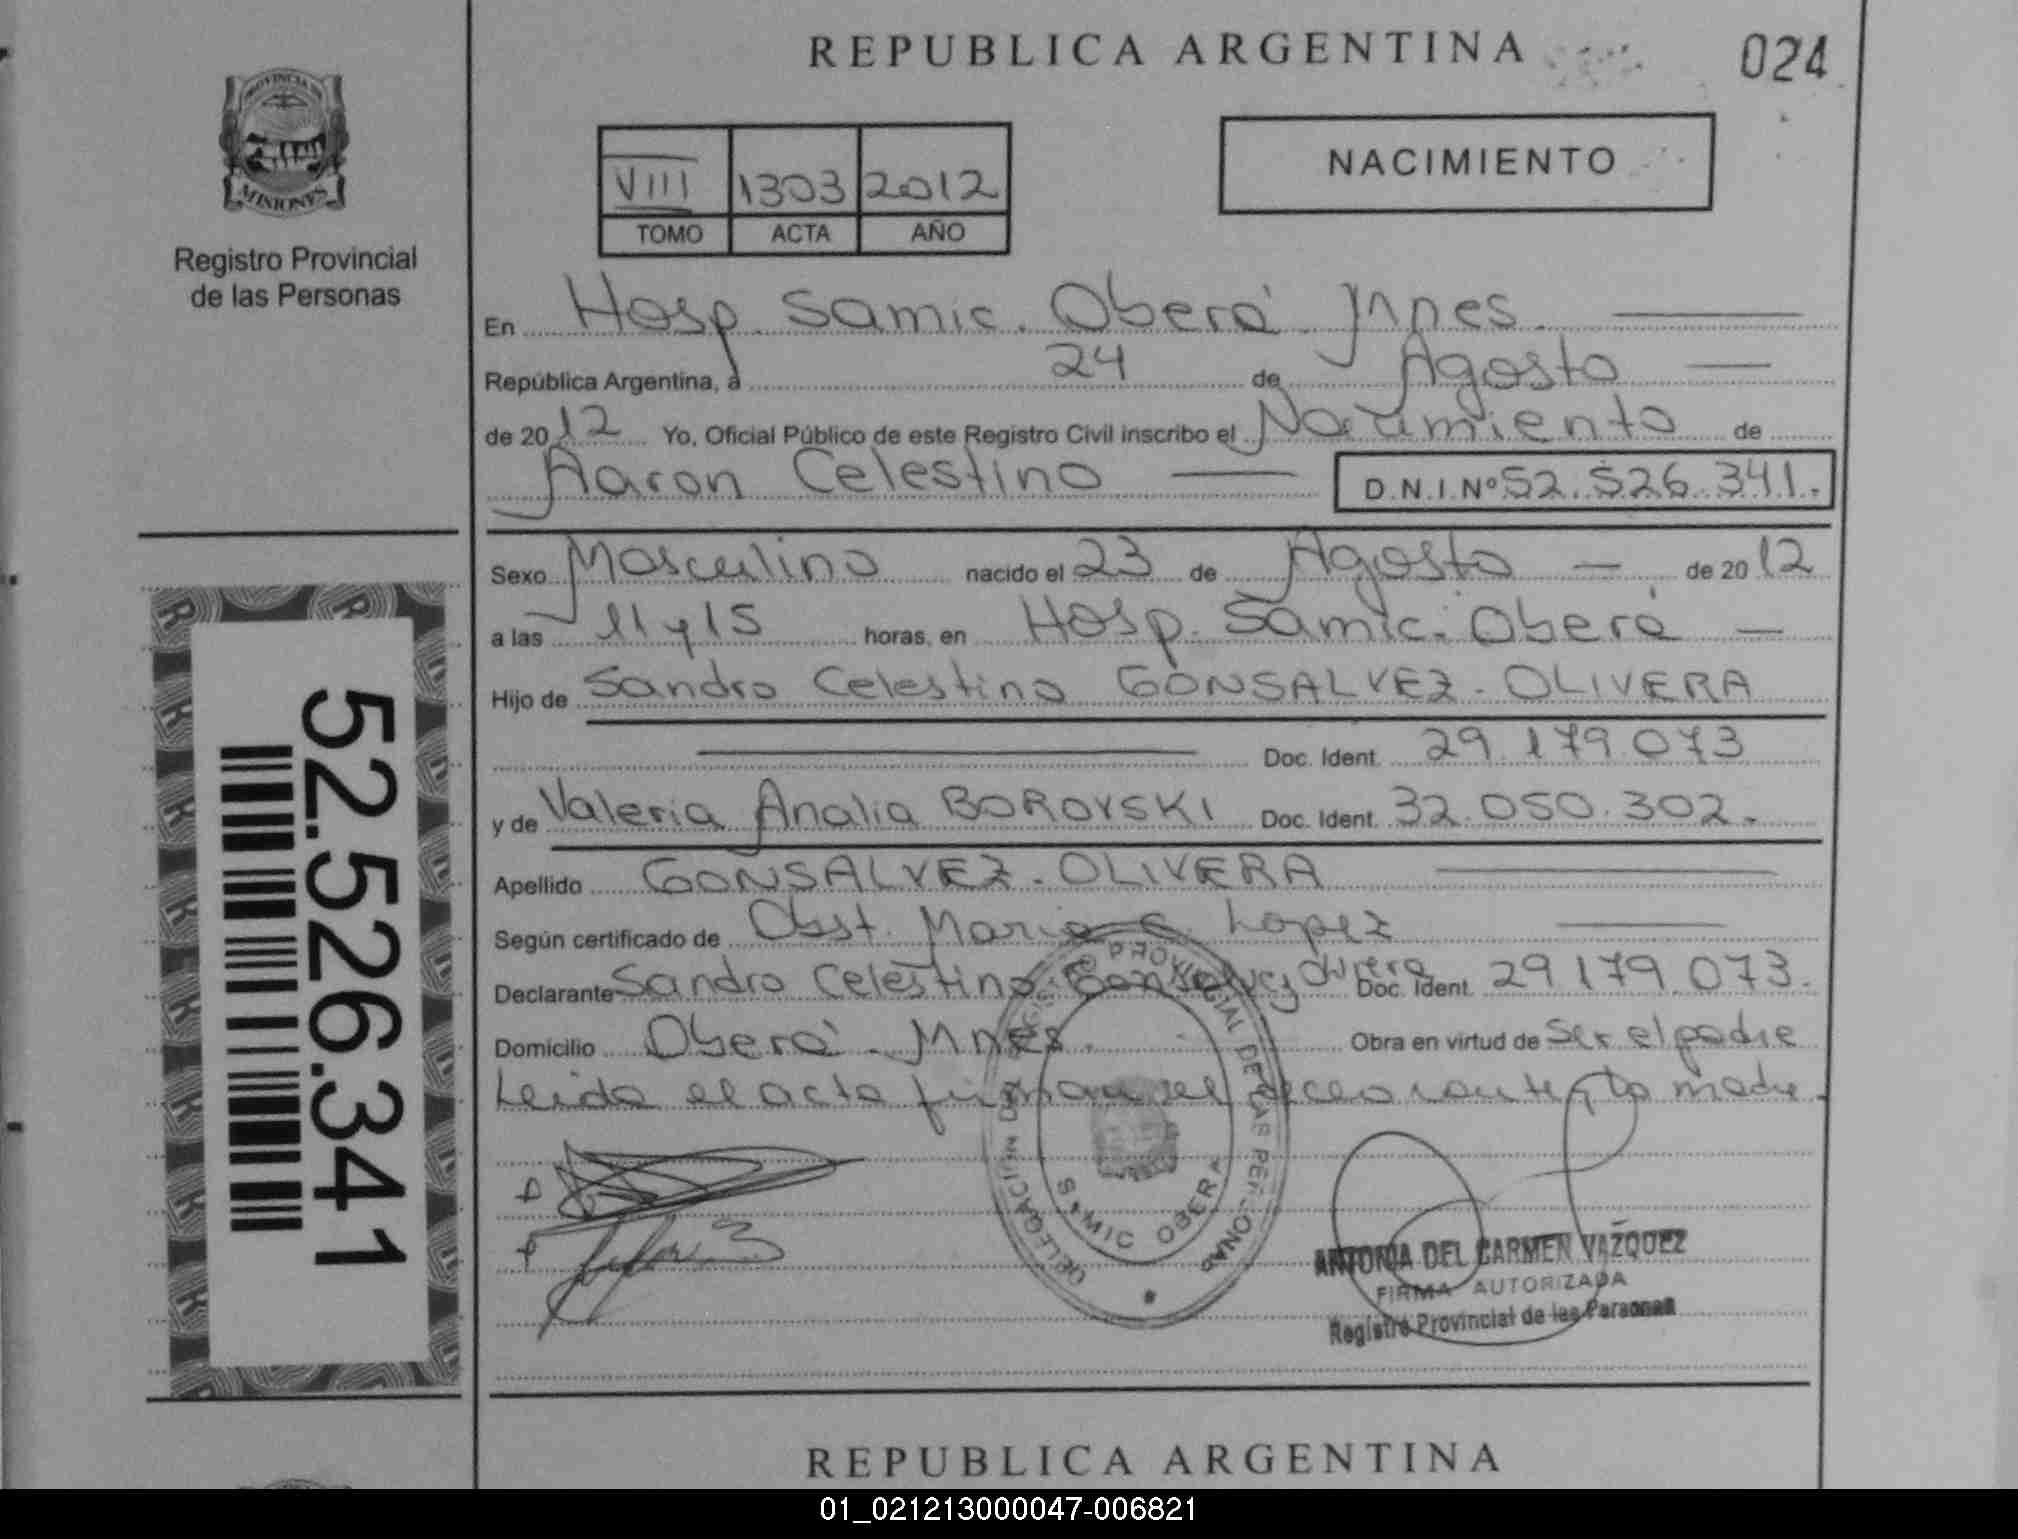 REPUBLICA ARGENTINA
024
PROVINCIA DE
MISIONES
Registro Provincial
de las Personas
VIII 1303 2012
TOMO ACTA AÑO
NACIMIENTO
En Hosp. Samic. Oberá Mnes.
República Argentina, a 24 de Agosto
de 2012 Yo, Oficial Público de este Registro Civil inscribo el Nacimiento de
Aaron Celestino D.N.I.Nº 52.526.341.
Sexo Masculino nacido el 23 de Agosto de 2012
a las 11 y 15 horas, en Hosp. Samic. Oberá
Hijo de Sandro Celestino GONSALVEZ - OLIVERA
Doc. Ident. 29.179.073
y de Valeria Analia BOROVSKI Doc. Ident. 32.050.302.
Apellido GONSALVEZ - OLIVERA
Según certificado de Obst. Maria C. Lopez
Declarante Sandro Celestino Gonsalvez Olivera Doc. Ident. 29.179.073.
Domicilio Oberá - Mnes. Obra en virtud de Ser el padre
Leida el acta firman el declarante y la madre.
DELEGACION DEL REGISTRO PROVINCIAL DE LAS PERSONAS
SAMIC OBERA
ANTONIA DEL CARMEN VAZQUEZ
FIRMA AUTORIZADA
Registro Provincial de las Personas
52.526.341
REPUBLICA ARGENTINA
01_021213000047-006821